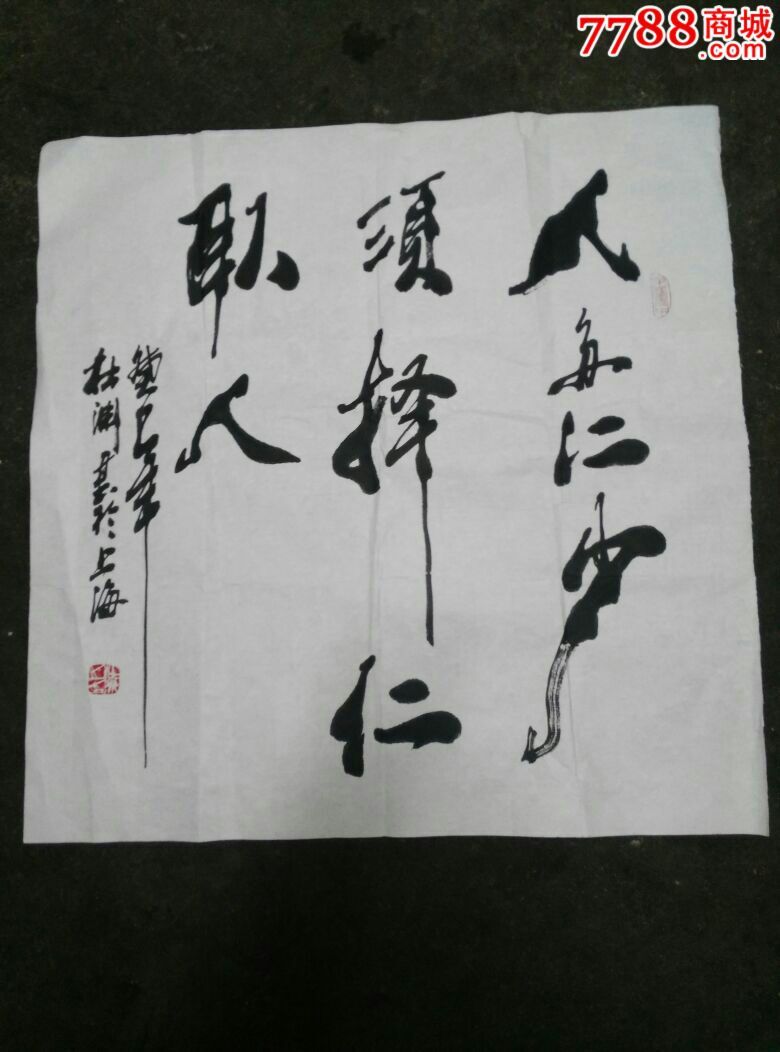 7788商城
.com
人多仁少
須择仁
取人
癸巳年
杜 於上海